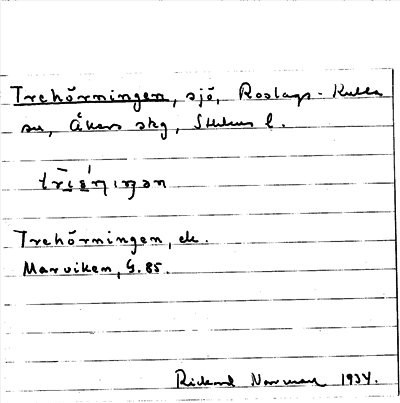 Trehörningen, sjö, Roslags-Kulla
sn, Åkers skg, Sthlms l.
Trehörningen, ek.
Marviken, G. 85.
Rickard Norrman 1934.